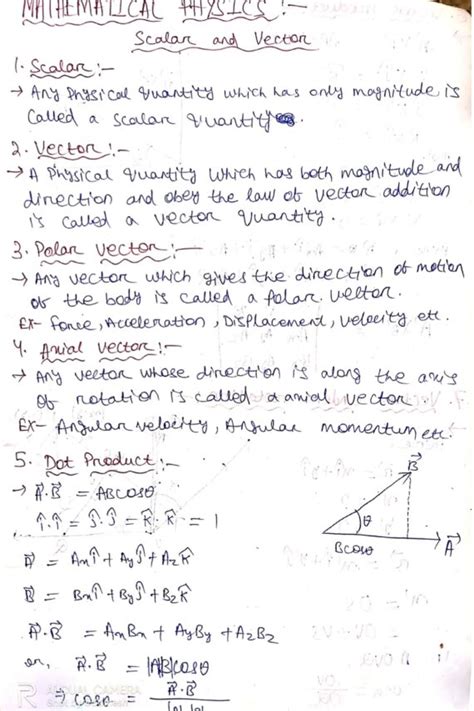 MATHEMATICAL PHYSICS :-
Scalar and Vector
1. Scalar :-
→ Any Physical quantity which has only magnitude is
called a scalar quantity.
2. Vector :-
→ A Physical quantity which has both magnitude and
direction and obey the law of vector addition
is called a vector quantity.
3. Polar vector :-
→ Any vector which gives the direction of motion
of the body is called a Polar vector.
Ex- force, Acceleration, Displacement, velocity, etc.
4. Axial vector :-
→ Any vector whose direction is along the axis
of rotation is called a axial vector.
Ex- Angular velocity, Angular momentum etc.
5. Dot Product :-
→ A⃗.B⃗ = ABcosθ
î.î = ĵ.ĵ = k̂.k̂ = 1
B⃗
θ
Bcosθ
A⃗
A⃗ = Axî + Ayĵ + Azk̂
B⃗ = Bxî + Byĵ + Bzk̂
A⃗.B⃗ = AxBx + AyBy + AzBz
or, A⃗.B⃗ = |A||B|cosθ
⇒ cosθ = A⃗.B⃗
CAMERA